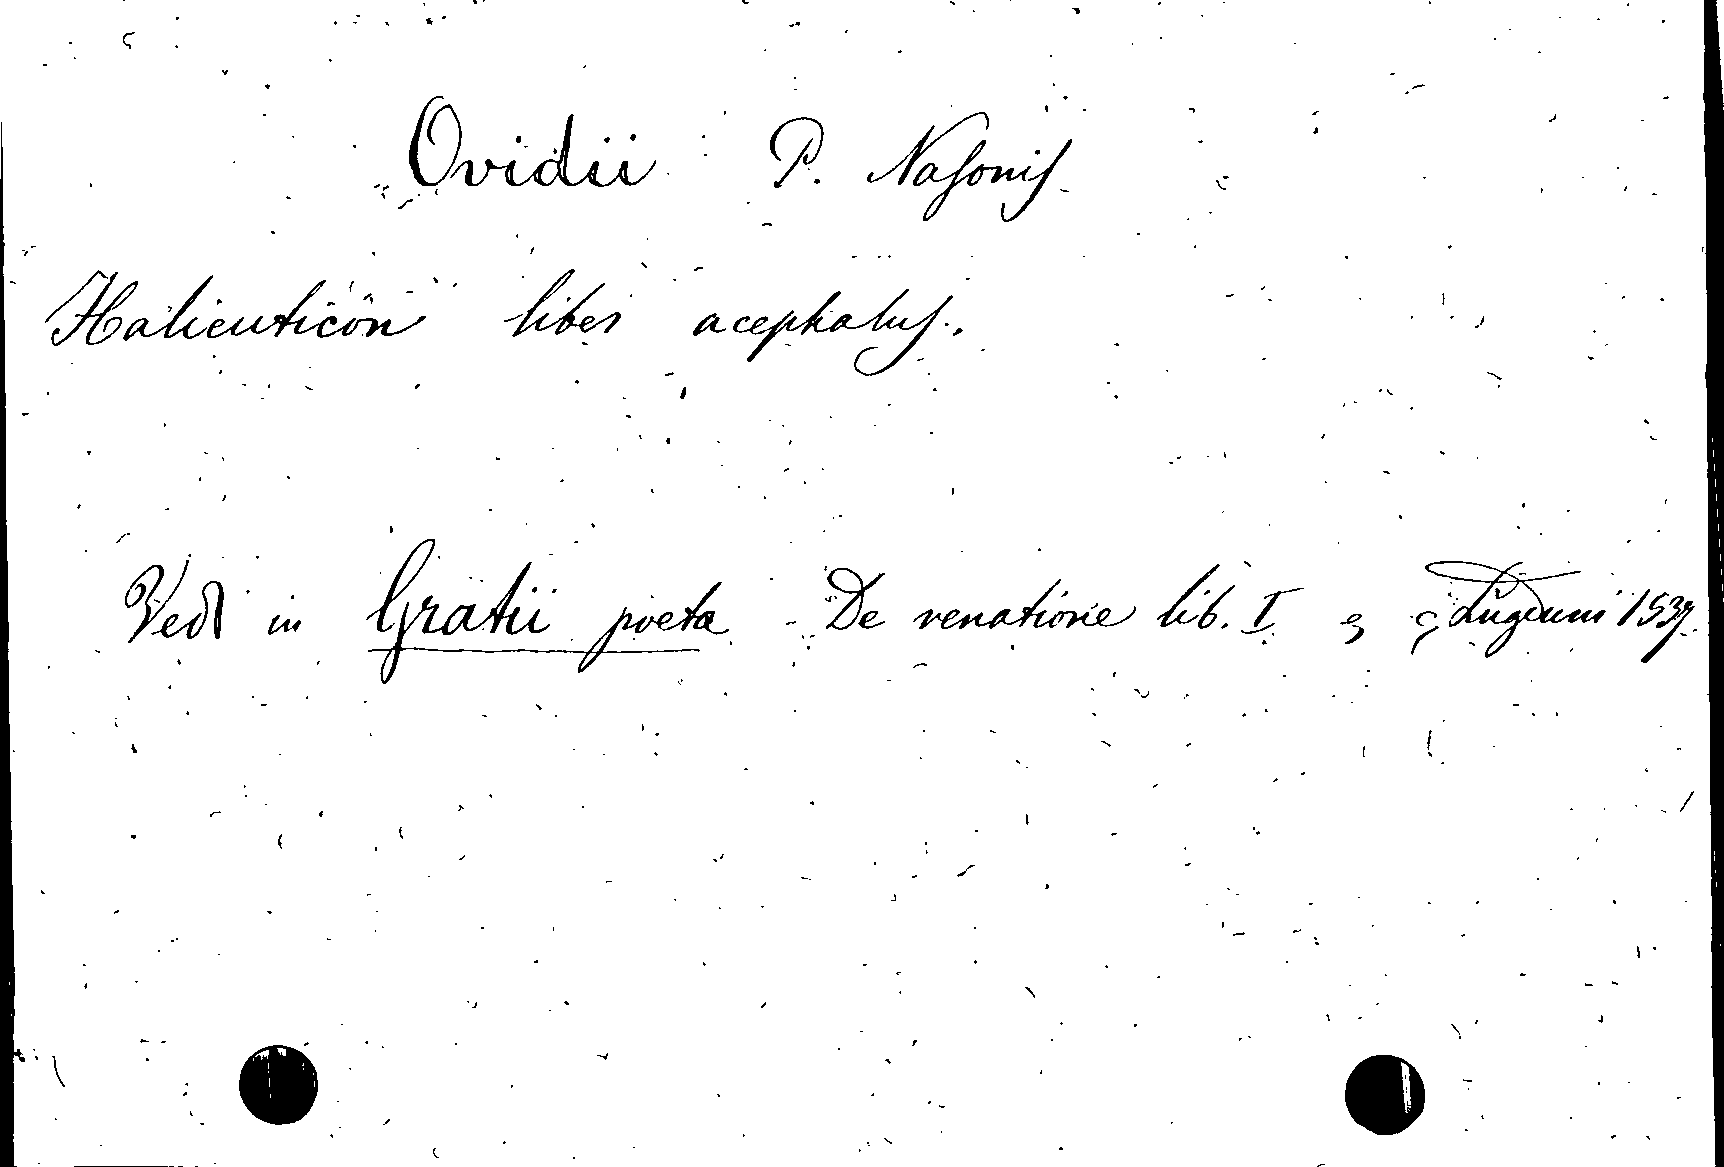 Ovidii P. Nasonis
Halieuticôn liber acephalus.
Vedi in Gratii poeta De venatione lib. I Lugduni 1537